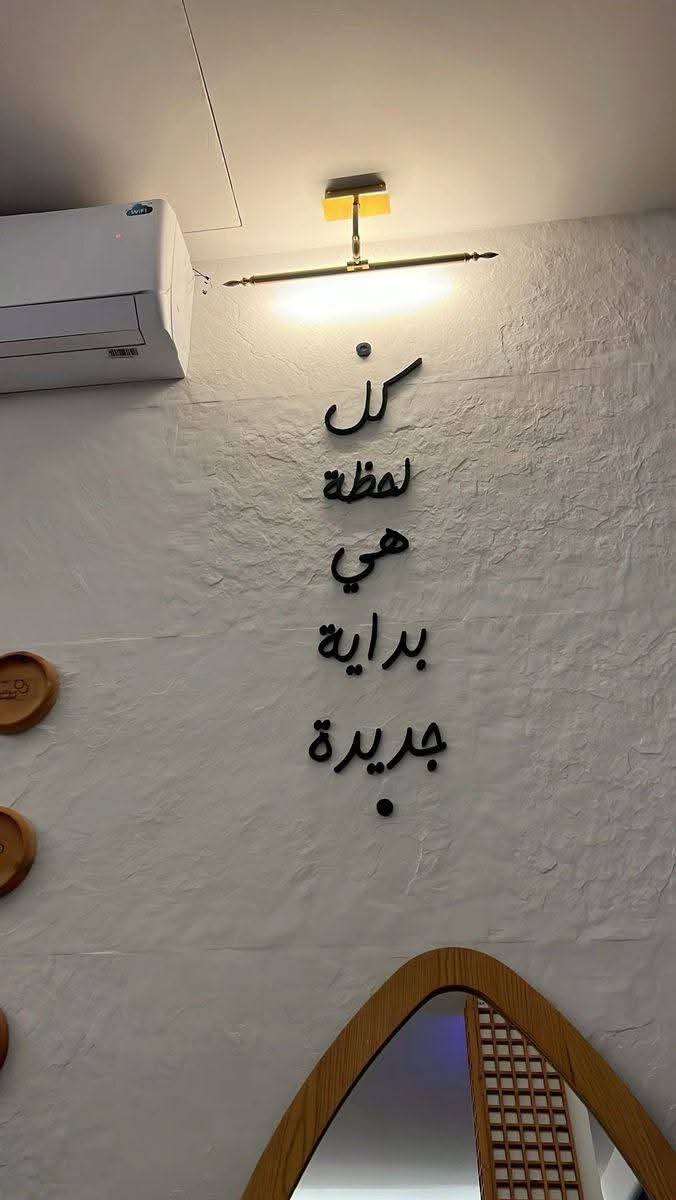 WiFi
كل
لحظة
هي
بداية
جديدة